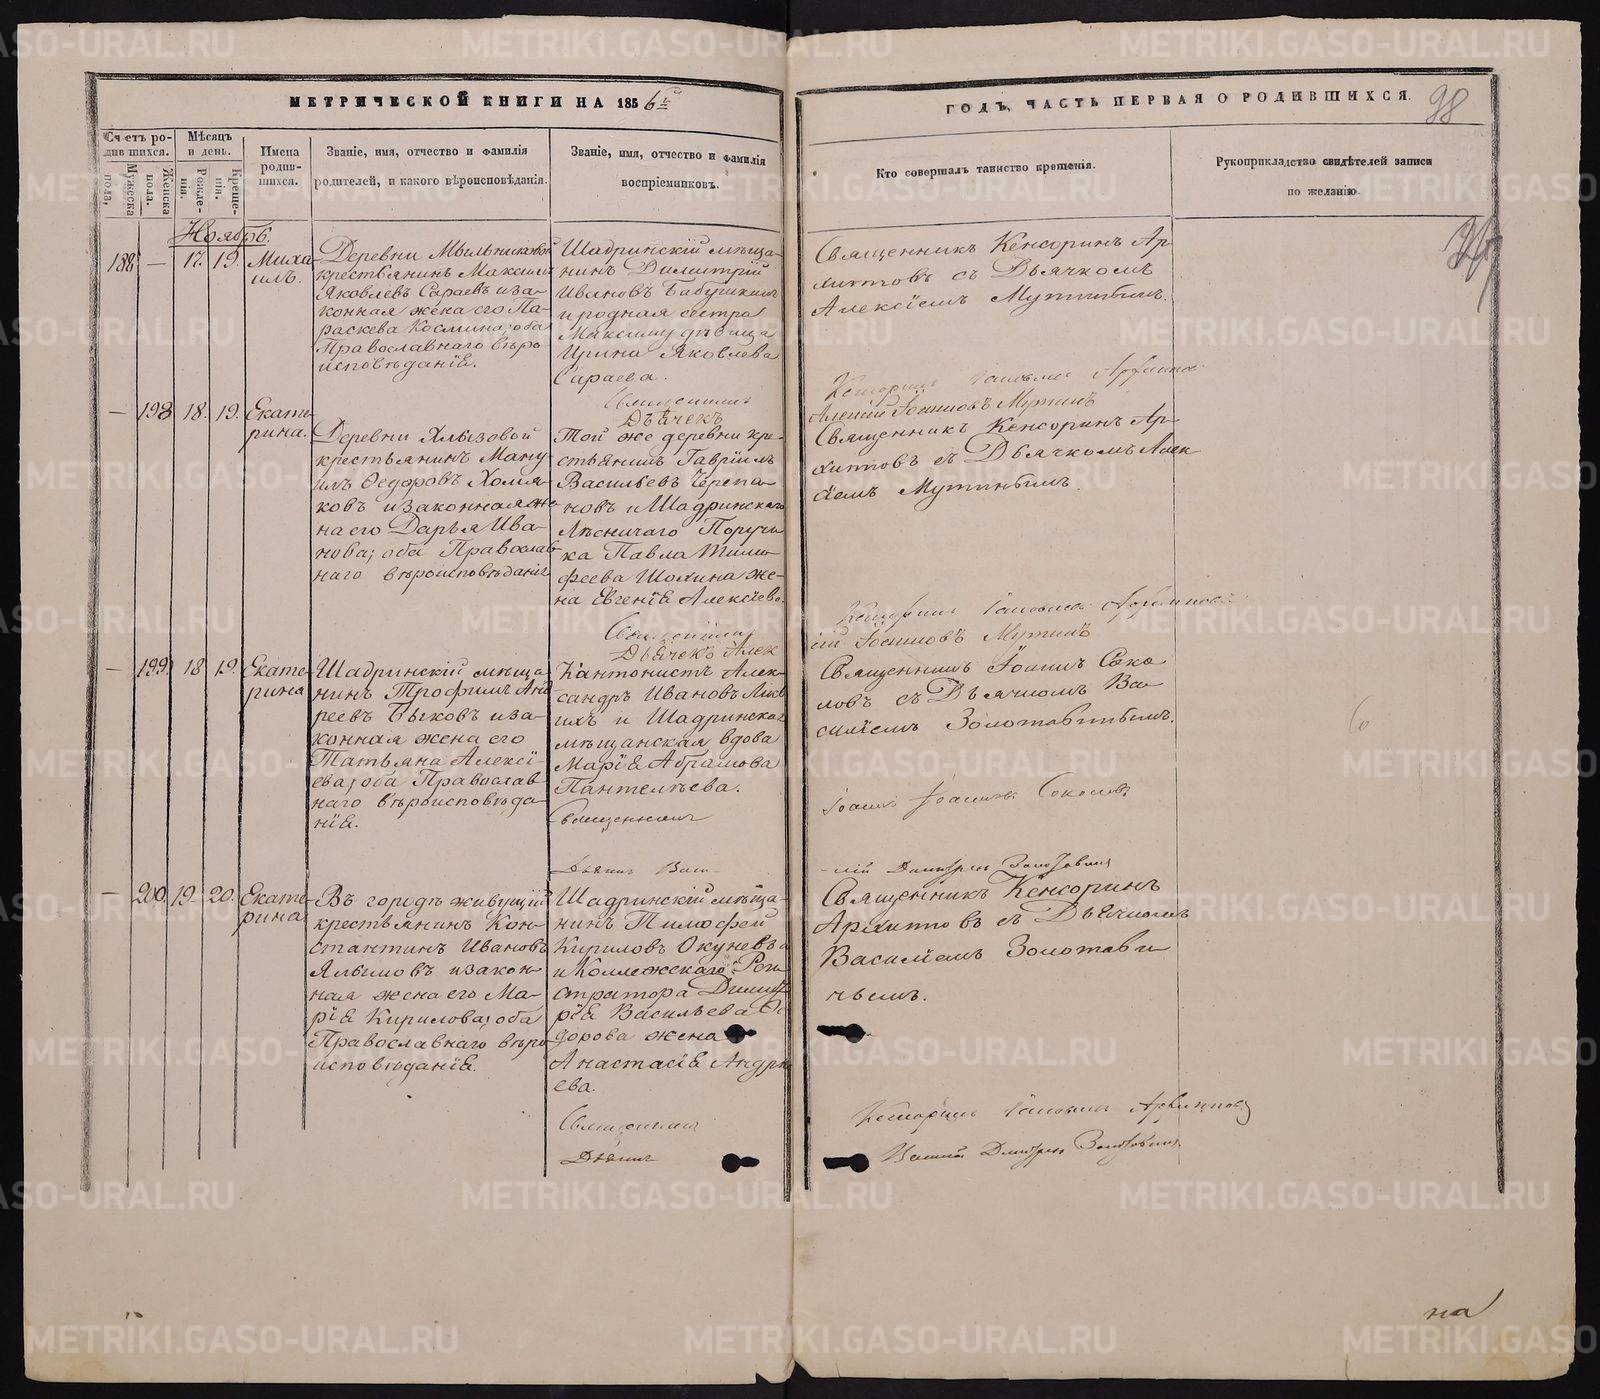 МЕТРИЧЕСКОЙ КНИГИ НА 1856 й
ГОДЪ, ЧАСТЬ ПЕРВАЯ О РОДИВШИХСЯ.
98
Счетъ ро-
дившихся.
Мужеска
пола,
Женска
пола.
Мѣсяцъ
и день.
Рожде-
нія.
Креще-
нія.
Имена
родив-
шихся.
Званіе, имя, отчество и фамилія
родителей, и какого вѣроисповѣданія.
Званіе, имя, отчество и фамилія
воспріемниковъ.
Кто совершалъ таинство крещенія.
Рукоприкладство свидѣтелей записи
по желанію.
Ноябрь.
188 — 17. 19. Миха-
илъ.
Деревни Мыльниковой
крестьянинъ Максимъ
Яковлевъ Сараевъ и за-
конная жена его Па-
раскева Космина, оба
Православнаго вѣро
исповѣданія.
Шадринскій мѣща-
нинъ Димитрій
Ивановъ Бабушкинъ
и родная сестра
Максиму дѣвица
Ирина Яковлева
Сараева.
Священникъ
Дьячекъ
Священникъ Кенсоринъ Ар-
хиповъ съ Дьячкомъ
Алексіемъ
Алексій Іоанновъ
— 198 18. 19. Екате-
рина.
Деревни Хлызовой
крестьянинъ Ману-
илъ Ѳедоровъ Холмя-
ковъ и законная же-
на его Дарья Ива-
нова; оба Православ-
наго вѣроисповѣданія
Той же деревни кре-
стьянинъ Гавріилъ
Васильевъ Черепа-
новъ и Шадринскаго
Лѣсничаго Поручи-
ка Павла Тимо-
феева Шохина же-
на Евгенія Алексіева.
Священникъ
Дьячекъ Алек
Священникъ Кенсоринъ Ар-
хиповъ съ Дьячкомъ Алек
сіемъ
ій Іоанновъ
— 199 18 19. Екате-
рина
Шадринскій мѣща-
нинъ Трофимъ Анд-
реевъ Быковъ и за-
конная жена его
Татьяна Алексі-
ева, оба Православ
наго вѣроисповѣда-
нія.
Кантонистъ Алек-
сандръ Ивановъ
ихъ и Шадринская
мѣщанская вдова
Марія Абрамова
Пантелѣева.
Священникъ
Дьячекъ Васи
Священникъ Іоаннъ Соко
ловъ съ Дьячкомъ Ва-
силіемъ Золотавинымъ.
Іоаннъ Іоанновъ Соколовъ
лій Дмитріевъ Золотавинъ
— 200. 19. 20. Екате-
рина
Въ городѣ живущій
крестьянинъ Кон-
стантинъ Ивановъ
Ялымовъ и закон-
ная жена его Ма-
рія Кирилова, оба
Православнаго вѣро
исповѣданія.
Шадринскій мѣща-
нинъ Тимофей
Кириловъ Окуневъ
и Коллежскаго Реги
стратора Димит
рія Васильева Ѳе
дорова жена
Анастасія Андре
ева.
Священникъ
Дьячекъ
Священникъ Кенсоринъ
Архиповъ съ Дьячкомъ
Василіемъ Золотави-
нымъ.
Василій Дмитріевъ Золотавинъ
на
METRIKI.GASO-URAL.RU